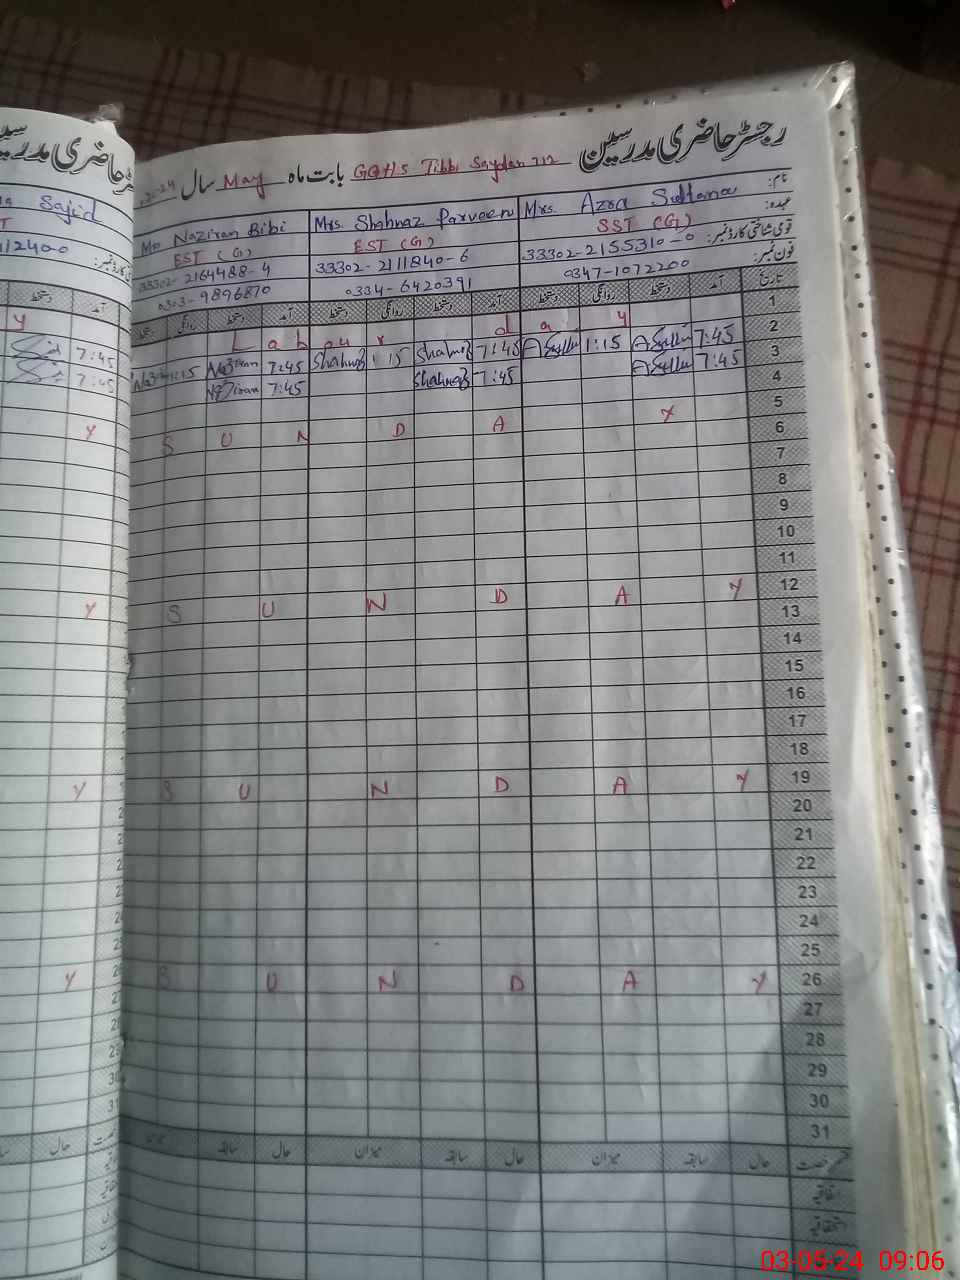 رجسٹر حاضری مدرسین GGHS Tibbi Saydan 712 بابت ماہ May سال
نام: Mrs. Azra Sultana Mrs. Shahnaz Parveen Mrs Naziran Bibi Sajid
عہدہ: SST (G) EST (G) EST (G)
قومی شناختی کارڈ نمبر: 33302-2155310-0 33302-2111840-6 33302-2164488-4
فون نمبر: 0347-1072200 0334-6420391 0303-9896870
تاریخ آمد دستخط روانگی دستخط آمد دستخط روانگی دستخط آمد دستخط روانگی دستخط آمد
1 L a b o u r d a y
2 7:45 1:15 Shahnaz 7:45 Shahnaz 1:15 7:45 Naziran 1:15 7:45
3 7:45 Shahnaz 7:45 Naziran 7:45 7:45
4
5 S U N D A Y Y
6
7
8
9
10
11
12 S U N D A Y Y
13
14
15
16
17
18
19 S U N D A Y Y
20
21
22
23
24
25
26 S U N D A Y Y
27
28
29
30
31
قسم رخصت حال سابقہ میزان حال سابقہ میزان حال سابقہ حال
اتفاقیہ
استحقاقیہ
03-05-24 09:06